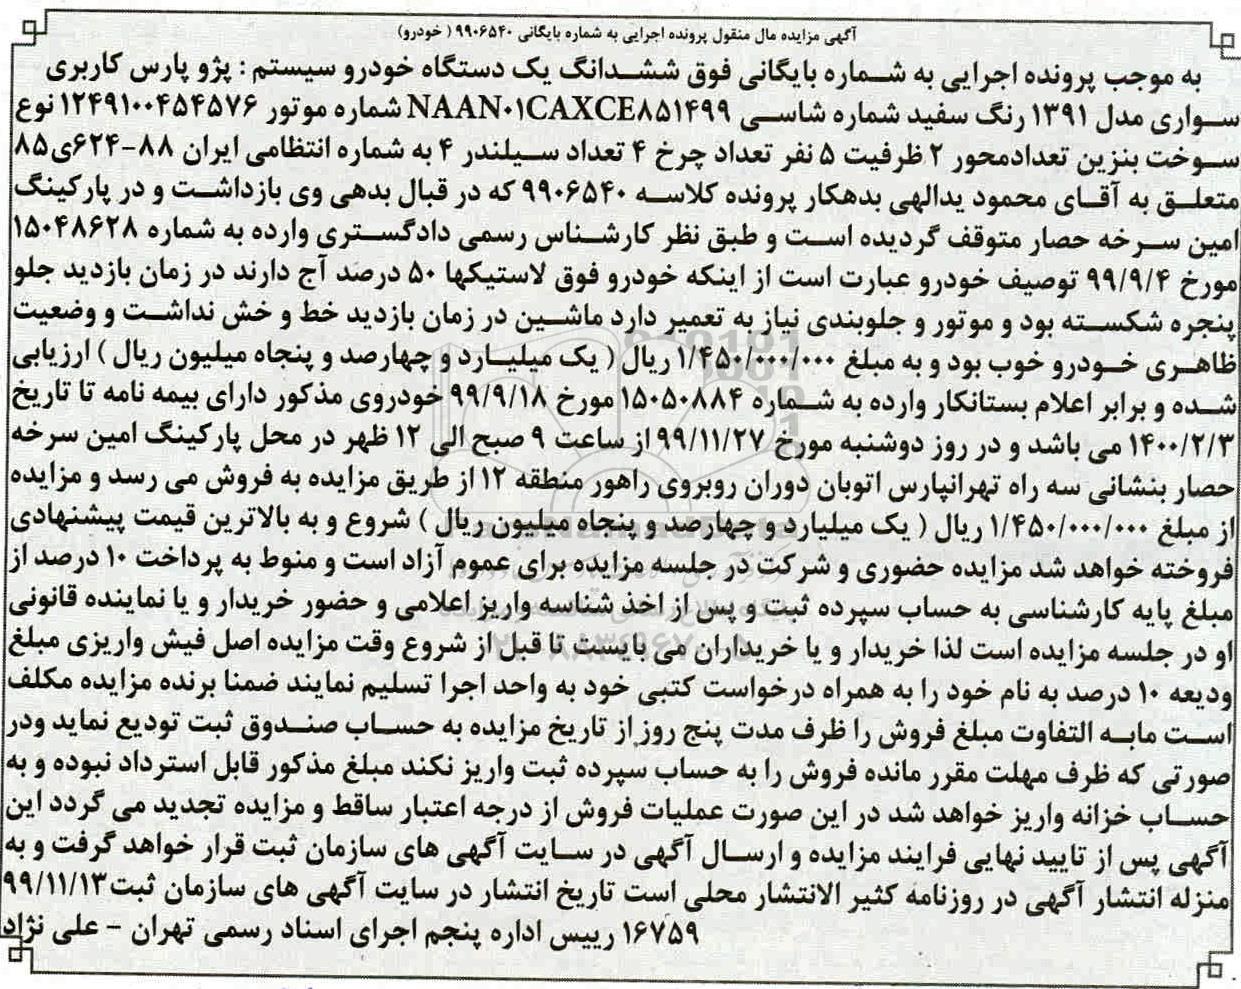 آگهی مزایده مال منقول پرونده اجرایی به شماره بایگانی ۹۹۰۶۵۴۰ ( خودرو)
به موجب پرونده اجرایی به شماره بایگانی فوق ششدانگ یک دستگاه خودرو سیستم : پژو پارس کاربری
سواری مدل ۱۳۹۱ رنگ سفید شماره شاسی NAAN۰۱CAXCE۸۵۱۴۹۹ شماره موتور ۱۲۴۹۱۰۰۴۵۴۵۷۶ نوع
سوخت بنزین تعدادمحور ۲ ظرفیت ۵ نفر تعداد چرخ ۴ تعداد سیلندر ۴ به شماره انتظامی ایران ۸۸-۶۲۴ی۸۵
متعلق به آقای محمود یدالهی بدهکار پرونده کلاسه ۹۹۰۶۵۴۰ که در قبال بدهی وی بازداشت و در پارکینگ
امین سرخه حصار متوقف گردیده است و طبق نظر کارشناس رسمی دادگستری وارده به شماره ۱۵۰۴۸۶۲۸
مورخ ۹۹/۹/۴ توصیف خودرو عبارت است از اینکه خودرو فوق لاستیکها ۵۰ درصد آج دارند در زمان بازدید جلو
پنجره شکسته بود و موتور و جلوبندی نیاز به تعمیر دارد ماشین در زمان بازدید خط و خش نداشت و وضعیت
ظاهری خودرو خوب بود و به مبلغ ۱/۴۵۰/۰۰۰/۰۰۰ ریال ( یک میلیارد و چهارصد و پنجاه میلیون ریال ) ارزیابی
شده و برابر اعلام بستانکار وارده به شماره ۱۵۰۵۰۸۸۴ مورخ ۹۹/۹/۱۸ خودروی مذکور دارای بیمه نامه تا تاریخ
۱۴۰۰/۲/۳ می باشد و در روز دوشنبه مورخ ۹۹/۱۱/۲۷ از ساعت ۹ صبح الی ۱۲ ظهر در محل پارکینگ امین سرخه
حصار بنشانی سه راه تهرانپارس اتوبان دوران روبروی راهور منطقه ۱۲ از طریق مزایده به فروش می رسد و مزایده
از مبلغ ۱/۴۵۰/۰۰۰/۰۰۰ ریال ( یک میلیارد و چهارصد و پنجاه میلیون ریال ) شروع و به بالاترین قیمت پیشنهادی
فروخته خواهد شد مزایده حضوری و شرکت در جلسه مزایده برای عموم آزاد است و منوط به پرداخت ۱۰ درصد از
مبلغ پایه کارشناسی به حساب سپرده ثبت و پس از اخذ شناسه واریز اعلامی و حضور خریدار و یا نماینده قانونی
او در جلسه مزایده است لذا خریدار و یا خریداران می بایست تا قبل از شروع وقت مزایده اصل فیش واریزی مبلغ
ودیعه ۱۰ درصد به نام خود را به همراه درخواست کتبی خود به واحد اجرا تسلیم نمایند ضمنا برنده مزایده مکلف
است مابه التفاوت مبلغ فروش را ظرف مدت پنج روز از تاریخ مزایده به حساب صندوق ثبت تودیع نماید ودر
صورتی که ظرف مهلت مقرر مانده فروش را به حساب سپرده ثبت واریز نکند مبلغ مذکور قابل استرداد نبوده و به
حساب خزانه واریز خواهد شد در این صورت عملیات فروش از درجه اعتبار ساقط و مزایده تجدید می گردد این
آگهی پس از تایید نهایی فرایند مزایده و ارسال آگهی در سایت آگهی های سازمان ثبت قرار خواهد گرفت و به
منزله انتشار آگهی در روزنامه کثیر الانتشار محلی است تاریخ انتشار در سایت آگهی های سازمان ثبت ۹۹/۱۱/۱۳
۱۶۷۵۹ رییس اداره پنجم اجرای اسناد رسمی تهران - علی نژاد